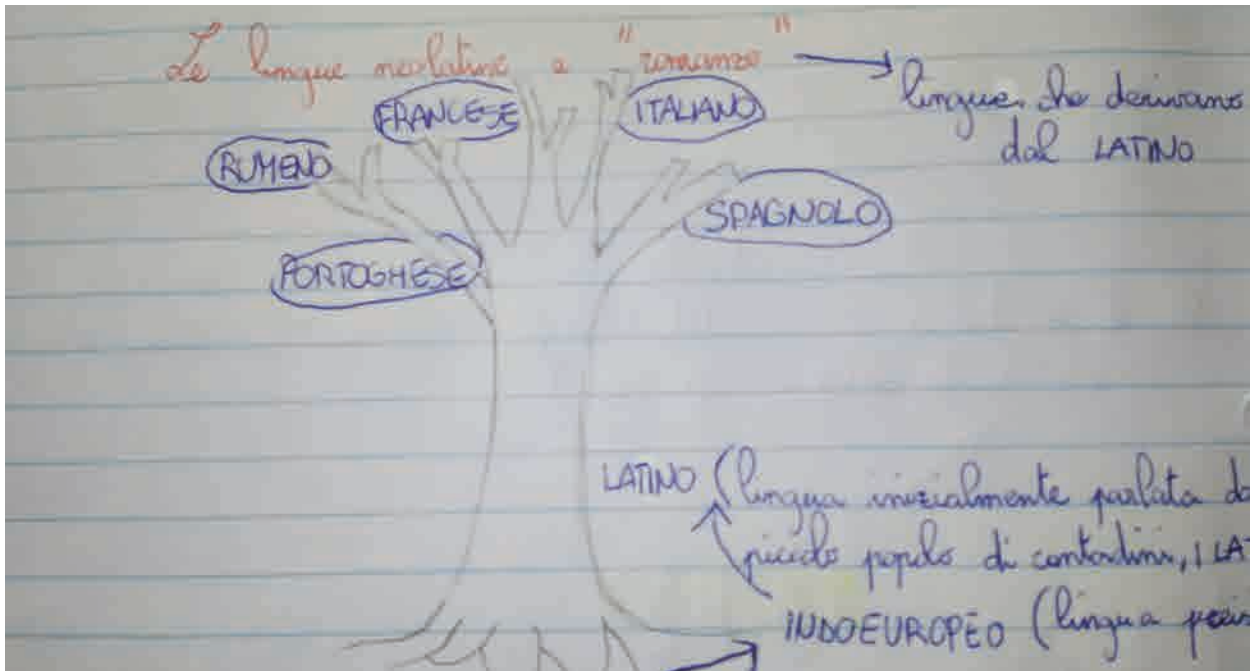 Le lingue neolatine o "romanze"
lingue che derivano
dal LATINO
FRANCESE
ITALIANO
RUMENO
SPAGNOLO
PORTOGHESE
LATINO (lingua inizialmente parlata da
piccolo popolo di contadini, I LAT
INDOEUROPEO (lingua